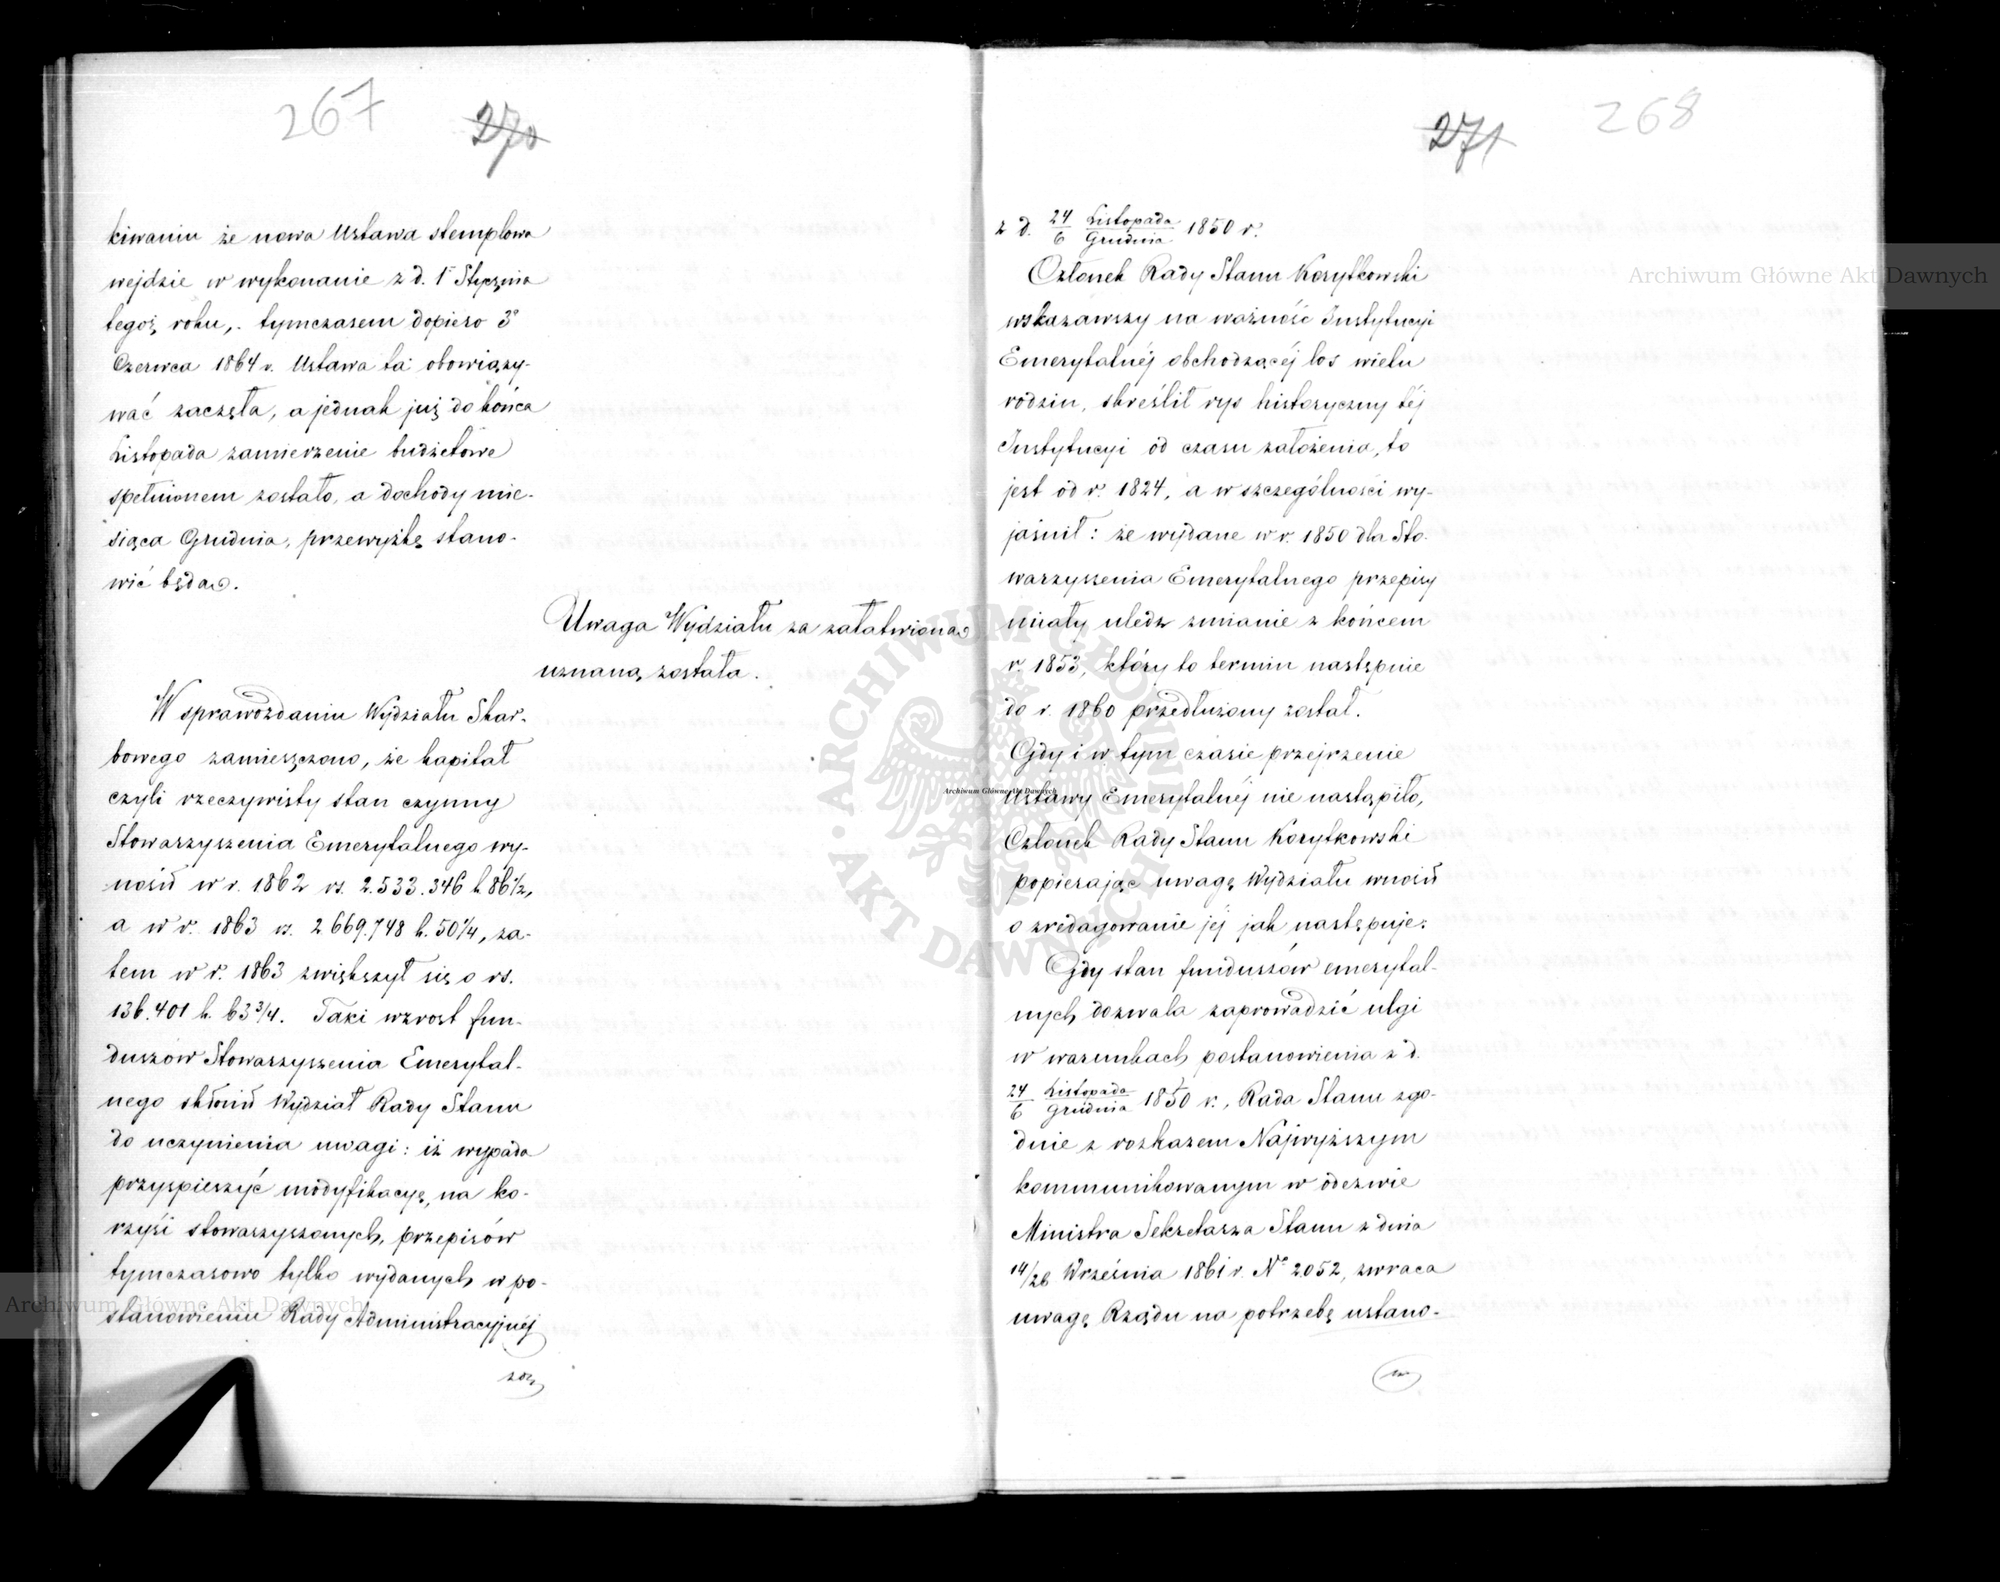 267
270
kiwaniu że nowa Ustawa stemplowa
wejdzie w wykonanie z d. 1 Stycznia
tegoż roku, tymczasem dopiero 3
Czerwca 1864 r. Ustawa ta obowiązy-
wać zaczęła, a jednak już do końca
Listopada zamierzenie budżetowe
spełnionem zostało, a dochody mie-
siąca Grudnia, przewyżkę stano-
wić będą.
Uwaga Wydziału za załatwioną
uznaną została.
W sprawozdaniu Wydziału Skar-
bowego zamieszczono, że kapitał
czyli rzeczywisty stan czynny
Stowarzyszenia Emerytalnego wy-
nosił w r. 1862 rs. 2.533.346 k 86½,
a w r. 1863 rs. 2.669.748 k. 50¼, za-
tem w r. 1863 zwiększył się o rs.
136.401 k. 63¾. Taki wzrost fun-
duszów Stowarzyszenia Emerytal-
nego skłonił Wydział Rady Stanu
do uczynienia uwagi: iż wypada
przyspieszyć modyfikacyę, na ko-
rzyść stowarzyszonych, przepisów
tymczasowo tylko wydanych w po-
stanowieniu Rady Administracyjnéj
271
268
z d. 24/6 Listopada/Grudnia 1850 r.
Członek Rady Stanu Korytkowski
wskazawszy na ważność Instytucyi
Emerytalnéj obchodzącéj los wielu
rodzin, skreślił rys historyczny téj
Instytucyi od czasu założenia, to
jest od r. 1824, a w szczególności wy-
jaśnił: że wydane w r. 1850 dla Sto-
warzyszenia Emerytalnego przepisy
miały uledz zmianie z końcem
r. 1853, który to termin następnie
do r. 1860 przedłużony został.
Gdy i w tym czasie przejrzenie
Ustawy Emerytalnéj nie nastąpiło,
Członek Rady Stanu Korytkowski
popierając uwagę Wydziału wnosił
o zredagowanie jéj jak następuje:
Gdy stan funduszów emerytal-
nych dozwala zaprowadzić ulgi
w warunkach postanowienia z d.
24/6 Listopada/Grudnia 1850 r., Rada Stanu zgo-
dnie z rozkazem Najwyższym
kommunikowanym w odezwie
Ministra Sekretarza Stanu z dnia
14/26 Września 1861 r. No 2052, zwraca
uwagę Rządu na potrzebę ustano-
Archiwum Główne Akt Dawnych
Archiwum Główne Akt Dawnych
Archiwum Główne Akt Dawnych
ARCHIWUM GŁÓWNE AKT DAWNYCH